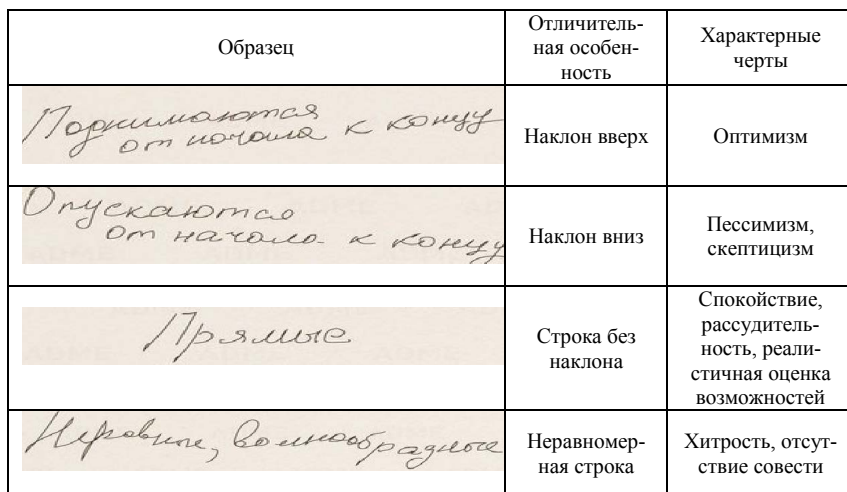 Образец
Отличитель-
ная особен-
ность
Характерные
черты
Поднимаются
от начала к концу
Наклон вверх
Оптимизм
Опускаются
от начала к концу
Наклон вниз
Пессимизм,
скептицизм
Прямые
Строка без
наклона
Спокойствие,
рассудитель-
ность, реали-
стичная оценка
возможностей
Неровные, волнообразные
Неравномер-
ная строка
Хитрость, отсут-
ствие совести